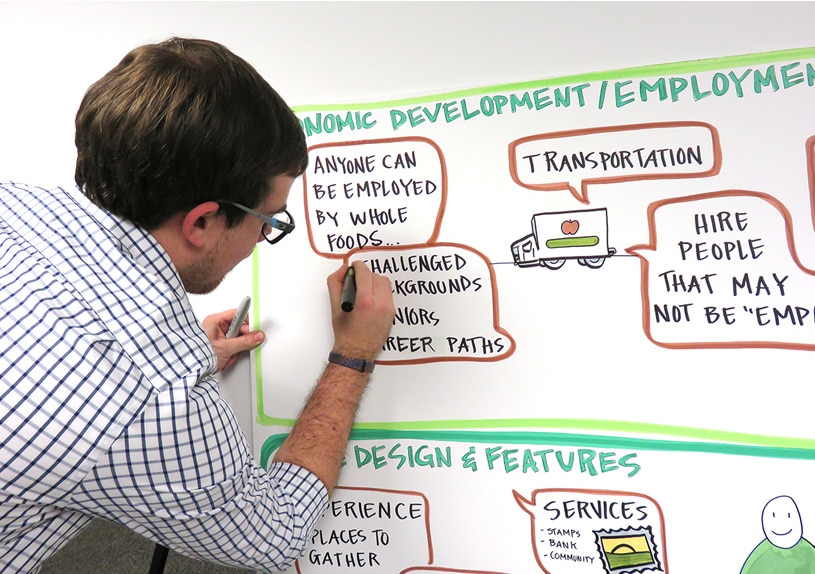 NOMIC DEVELOPMENT/EMPLOYMEN
ANYONE CAN
BE EMPLOYED
BY WHOLE
FOODS...
CHALLENGED
KGROUNDS
NIORS
REER PATHS
TRANSPORTATION
HIRE
PEOPLE
THAT MAY
NOT BE "EMP
DESIGN & FEATURES
PERIENCE
PLACES TO
GATHER
SERVICES
- STAMPS
- BANK
- COMMUNITY